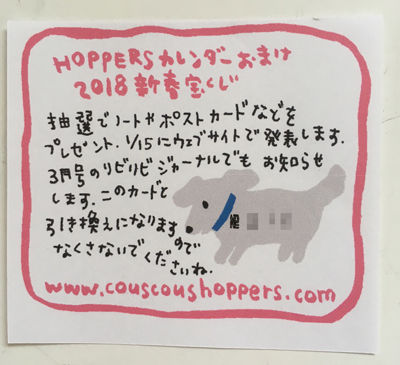 HOPPERSカレンダーおまけ
2018新春宝くじ
抽選でノートやポストカードなどを
プレゼント．1/15にウェブサイトで発表します．
3月号のリビリビジャーナルでもお知らせ
します．このカードと
引き換えになりますので
なくさないでくださいね．
www.couscoushoppers.com